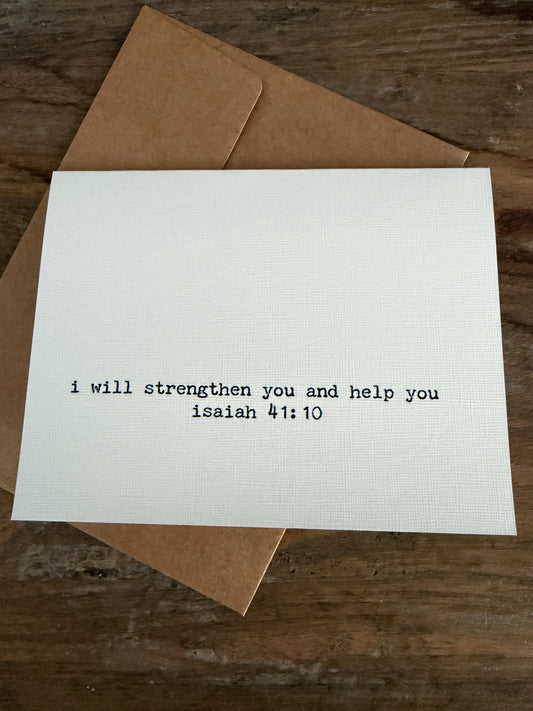 i will strengthen you and help you
isaiah 41:10